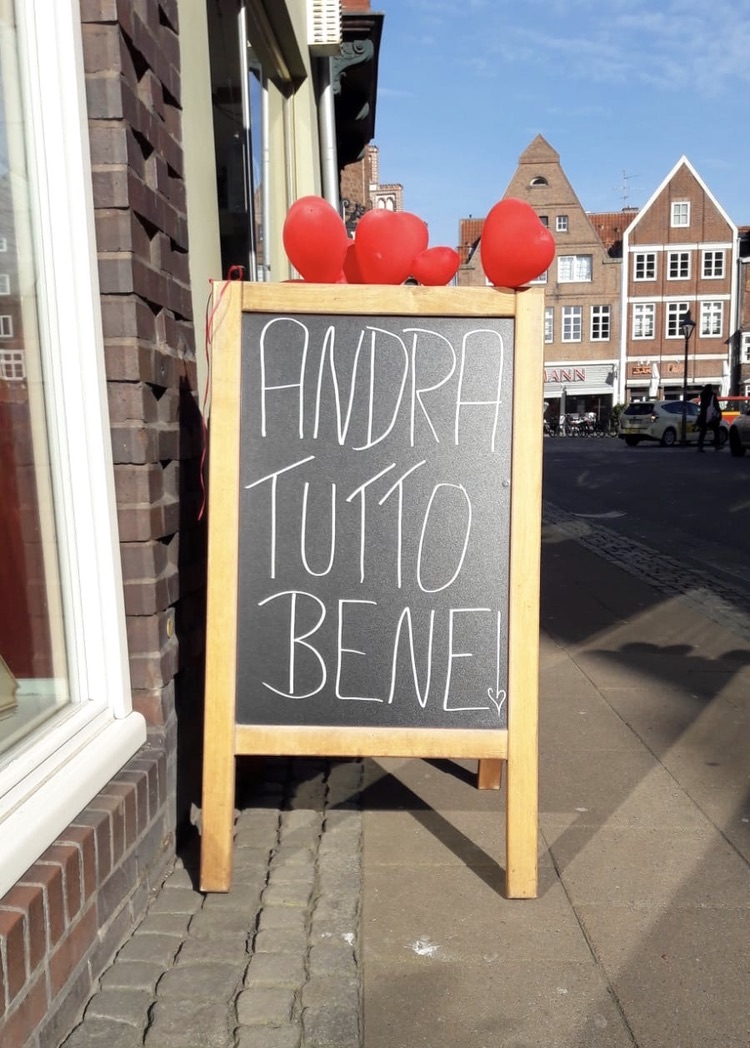 ANDRA
TUTTO
BENE!
MANN